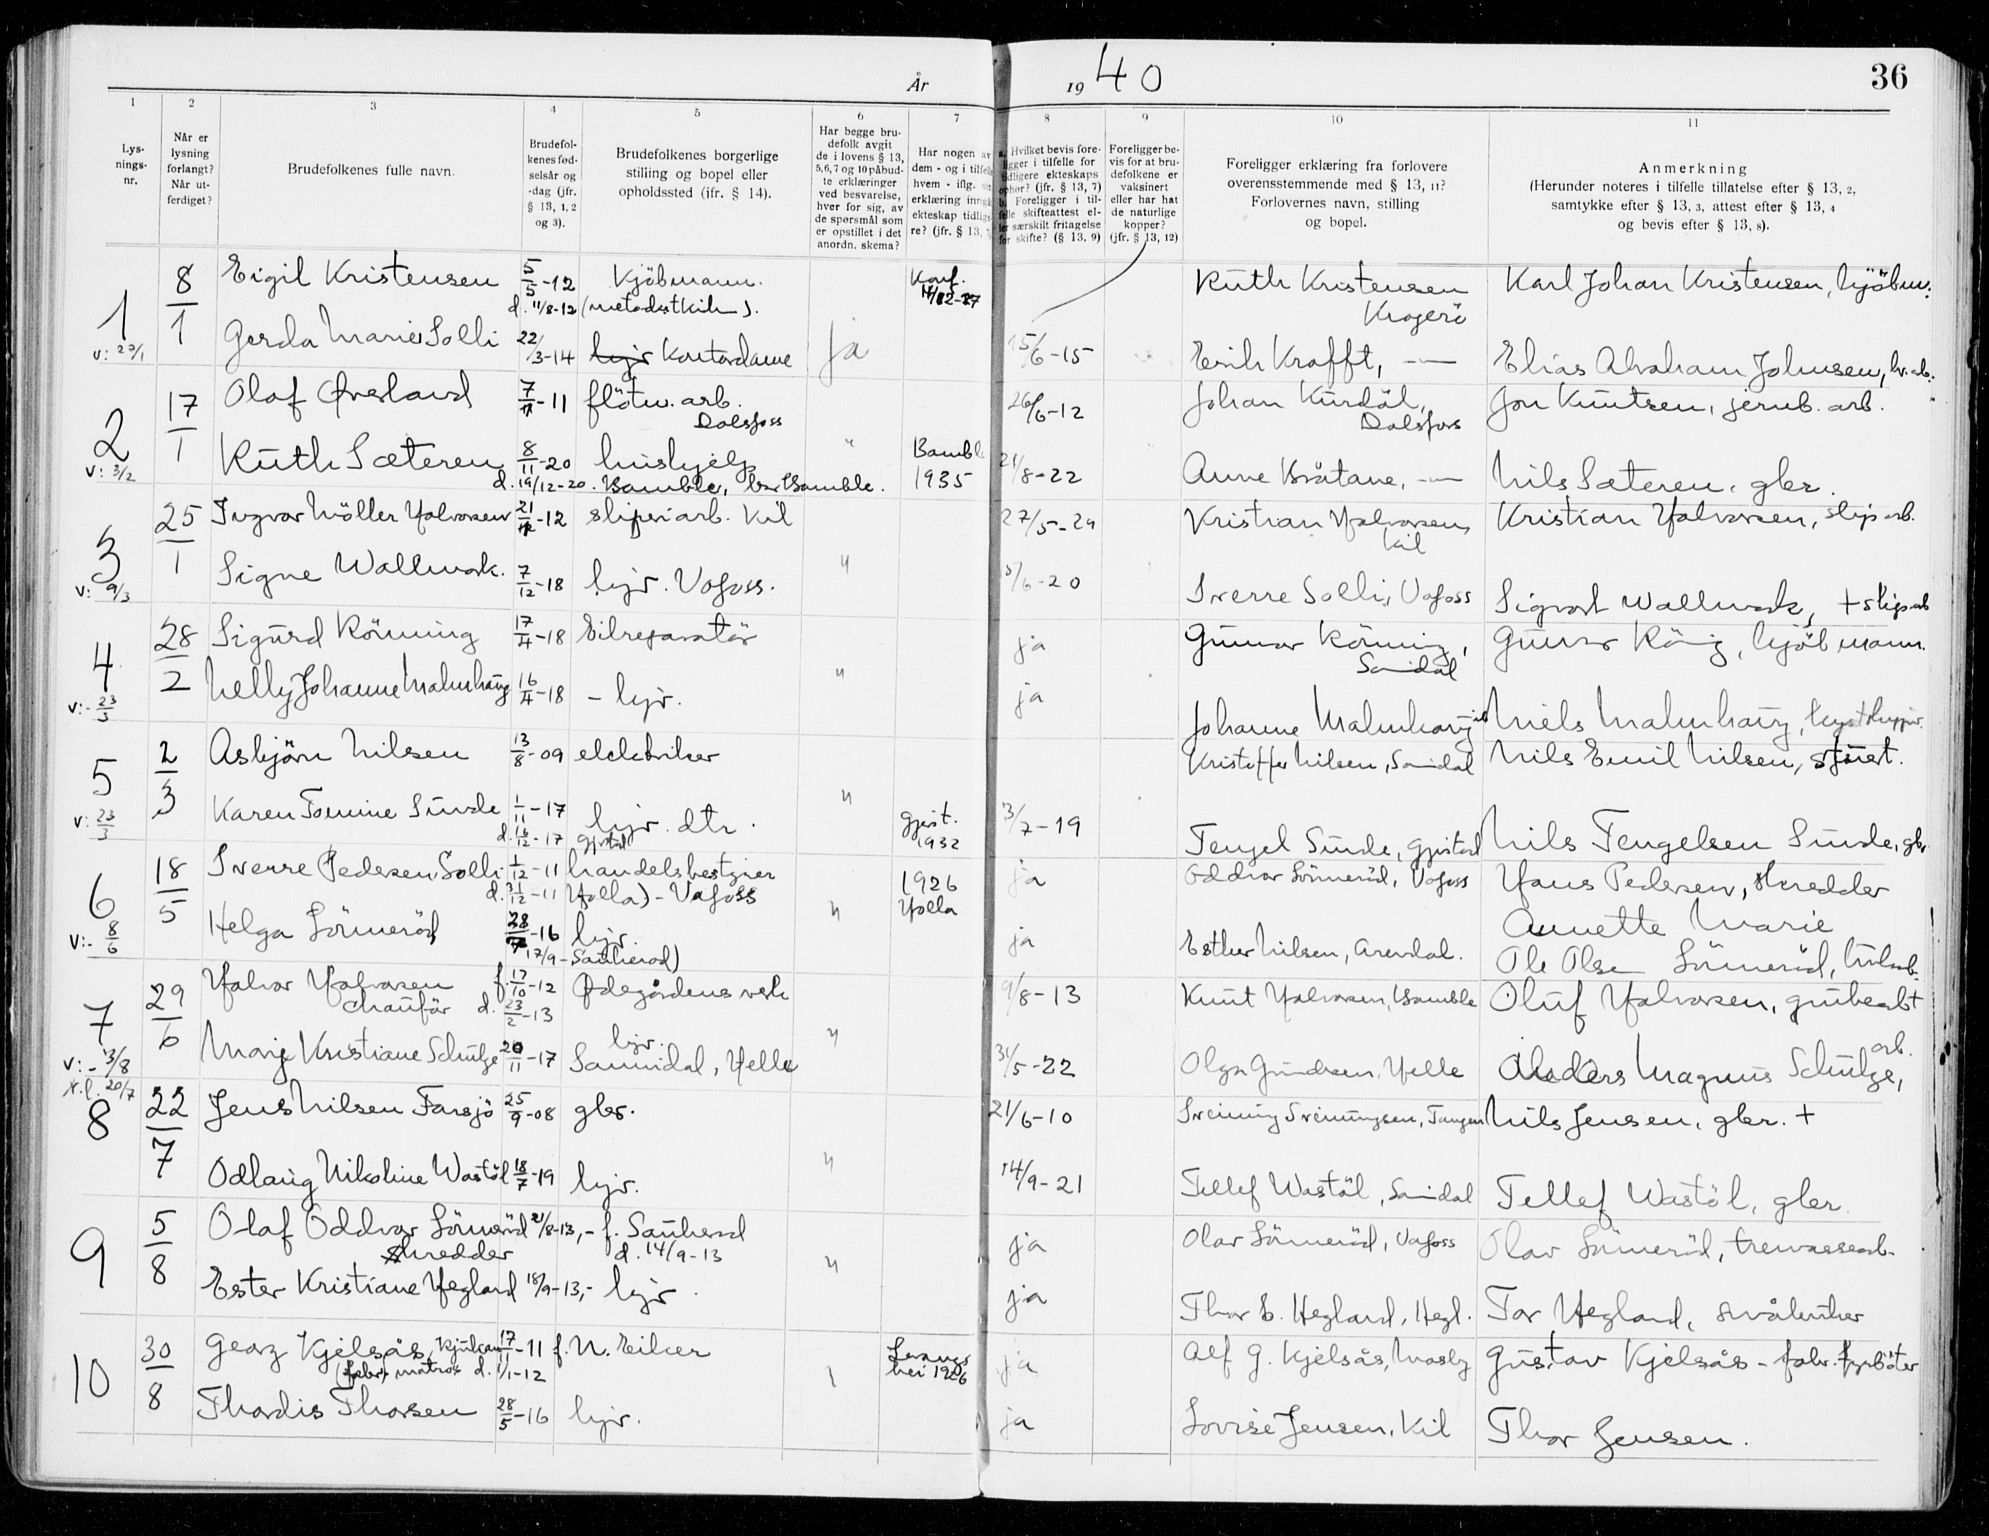 År 1940 36
1 2 3 4 5 6 7 8 9 10 11
Lysningsnr.
Når er lysning forlangt? Når utferdiget?
Brudefolkenes fulle navn.
Brudefolkenes fødselsår og -dag (jfr. § 13, 1, 2 og 3).
Brudefolkenes borgerlige stilling og bopel eller opholdssted (jfr. § 14).
Har begge brudefolk avgit de i lovens § 13, 5,6,7 og 10 påbudte erklæringer ved besvarelse, hver for sig, av de spørsmål som er opstillet i det anordn. skema?
Har nogen av dem - og i tilfelle hvem - iflg. erklæring inngått ekteskap tidligere? (jfr. § 13,
a. Hvilket bevis foreligger i tilfelle for tidligere ekteskaps ophør? (jfr. § 13, 7) b. Foreligger i tilfelle skifteattest eller særskilt fritagelse for skifte? (§ 13, 9)
Foreligger bevis for at brudefolkene er vaksinert eller har hat de naturlige kopper? (jfr. § 13, 12)
Foreligger erklæring fra forlovere overensstemmende med § 13, 11? Forlovernes navn, stilling og bopel.
Anmerkning (Herunder noteres i tilfelle tillatelse efter § 13, 2, samtykke efter § 13, 3, attest efter § 13, 4 og bevis efter § 13, 8).
1 8/1 Eigil Kristensen 5/5-12 Kjöbmann. Konf. Ruth Kristensen Karl Johan Kristensen, kjöbm.
d. 11/8-12 Kragerö
v: 27/1 Gerda Marie Solli 22/3-14 Kontordame ja 15/6-15 Erik Krafft, -"- Elias Abraham Johnsen,
2 17/1 Olaf Øverland 7/11-11 flötn. arb. Dalsfoss 26/6-12 Johan Kurdöl, Dalsfoss Jon Knutsen, jernb. arb.
v: 3/2 Ruth Sæteren 8/11-20 hushjelp " Bamble 1935 21/8-22 Anne Bråtane, -"- Nils Sæteren, gbr.
d. 19/12-20. Bamble, Bamble.
3 25/1 Ingvar Möller Halvorsen 21/12-12 sliperiarb. Kil 27/5-29 Kristian Halvorsen, Kil Kristian Halvorsen, slip arb.
v: 9/3 Signe Wallmark. 7/12-18 hjv. Vafoss. " /6-20 Sverre Solli, Vafoss Sigvart Wallmark, + slip arb
4 28/2 Sigurd Rönning 17/4-18 Bilreparatör ja Gunnar Rönning, Sanidal Gunnar Röning, kjöbmann.
v:- 23/3 Nelly Johanne Malmhaug 16/4-18 - hjv. " ja Johanne Malmhaug Niels Malmhaug,
5 2/3 Asbjörn Nilsen 13/8-09 elektriker Kristoffer Nilsen, Sanidal Nils Emil Nilsen, stuert.
v: 23/3 Karen Tomine Sunde 1/11-17 hjv. dtr. " Gjerst. 1932 13/7-19 Tengel Sunde, Gjerstad Nils Tengelsen Sunde, gbr
d. 16/12-17 Gjerstad
6 18/5 Sverre Pedersen Solli 1/12-11 handelsbestyrer 1926 ja Oddvar Sörneröd, Vafoss Hans Pedersen, skredder
d. 31/12-11 Holla) - Vafoss " Holla Annette Marie
v:- 8/6 Helga Sörneröd 28/7-16 hjv. ja Esther Nilsen, Arendal. Ole Olsen Sörneröd,
17/9- Sauherad)
7 29/6 Halvor Halvorsen f. 17/10-12 Ødegårdens verk 9/8-13 Knut Halvorsen, Bamble Oluf Halvorsen, grubearbt
chauför d. 23/2-13
v:- 3/8 Marie Kristiane Schulze 20/11-17 hjv. Sannidal, Helle " 31/5-22 Olga Gundersen, Helle Anders Magnus Schulze, arb.
20/7
8 22/7 Jens Nilsen Farsjö 25/9-08 gbr. 21/6-10 Sveinung Sveinungsen, Tangen Nils Jensen, gbr. +
Odlaug Nikoline Wastöl 18/7-19 hjv. " 14/9-21 Tellef Wastöl, Sanidal Tellef Wastöl, gbr.
9 5/8 Olaf Oddvar Sörneröd 21/8-13,- f. Sauherad ja Olav Sörneröd, Vafoss Olav Sörneröd, trevarearb.
skredder d. 14/9-13 "
Ester Kristiane Hegland 18/9-13,- hjv. ja Thor E. Hegland, Hegl. Tor Hegland, småbruker
10 30/8 Georg Kjelsås, Rjukan 17/11-11 f. N. Eiker 1926 ja Alf G. Kjelsås, Mosby Gustav Kjelsås - fabr. fyrböter
matros d. 1/1-12
Thordis Thorsen 28/5-16 hjv. ja Lovise Jensen, Kil Thor Jensen.